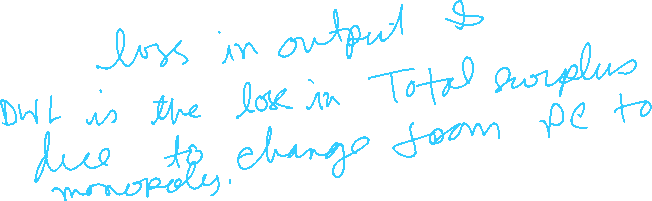 loss in output &
DWL is the lose in Total surplus
due to change from PC to
monopoly.